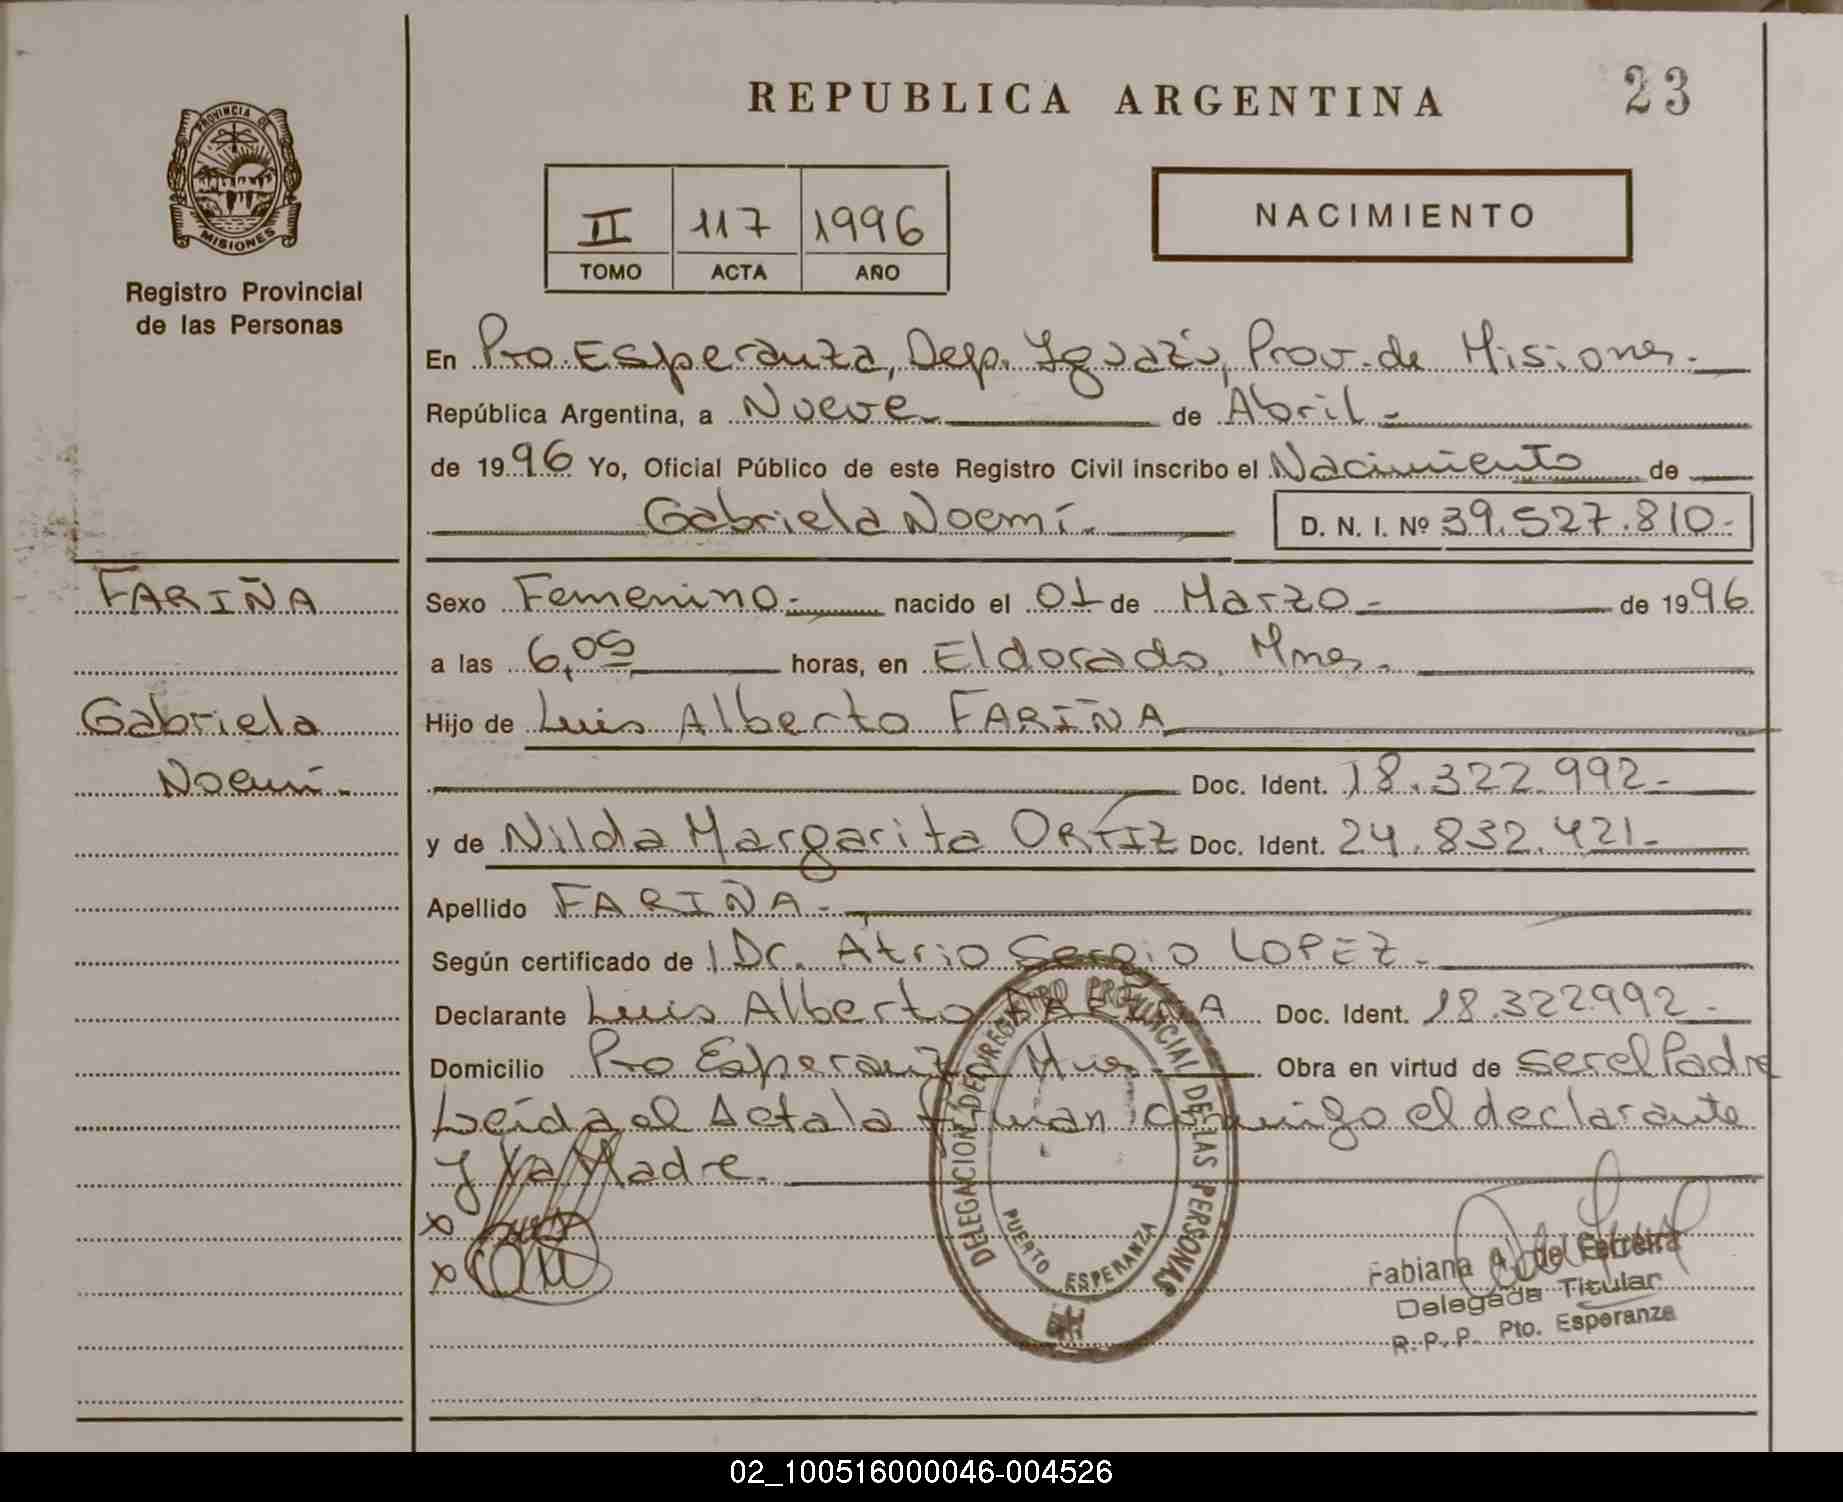 REPUBLICA ARGENTINA
23
PROVINCIA DE
MISIONES
Registro Provincial
de las Personas
II 117 1996
TOMO ACTA AÑO
NACIMIENTO
En Pto. Esperanza, Dep. Iguazú, Prov. de Misiones.-
República Argentina, a Nueve de Abril.-
de 1996 Yo, Oficial Público de este Registro Civil inscribo el Nacimiento de
Gabriela Noemí.- D. N. I. Nº 39.527.810.-
FARIÑA
Gabriela
Noemí.-
Sexo Femenino.- nacido el 01 de Marzo.- de 1996
a las 6,05 horas, en Eldorado, Mnes.-
Hijo de Luis Alberto FARIÑA
Doc. Ident. 18.322.992.-
y de Nilda Margarita ORTIZ Doc. Ident. 24.832.421.-
Apellido FARIÑA.-
Según certificado de Dr. Atrio Sergio LOPEZ.-
Declarante Luis Alberto FARIÑA Doc. Ident. 18.322992.-
Domicilio Pto Esperanza Mnes.- Obra en virtud de ser el Padre
Leída el Acta la firman conmigo el declarante
y la Madre.
DELEGACION DEL REGISTRO PROVINCIAL DE LAS PERSONAS
PUERTO ESPERANZA
Fabiana A. de Ferreira
Delegada Titular
R.P.P. Pto. Esperanza
02_100516000046-004526